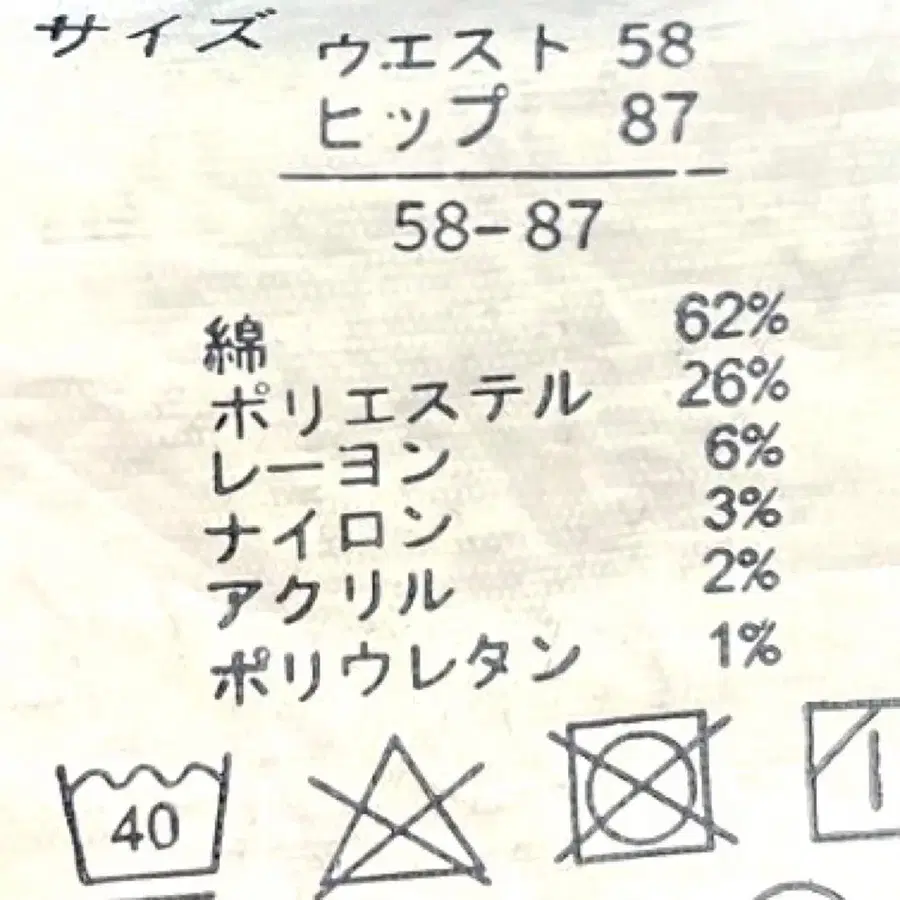 サイズ ウエスト 58
ヒップ 87
58-87
綿 62%
ポリエステル 26%
レーヨン 6%
ナイロン 3%
アクリル 2%
ポリウレタン 1%
40